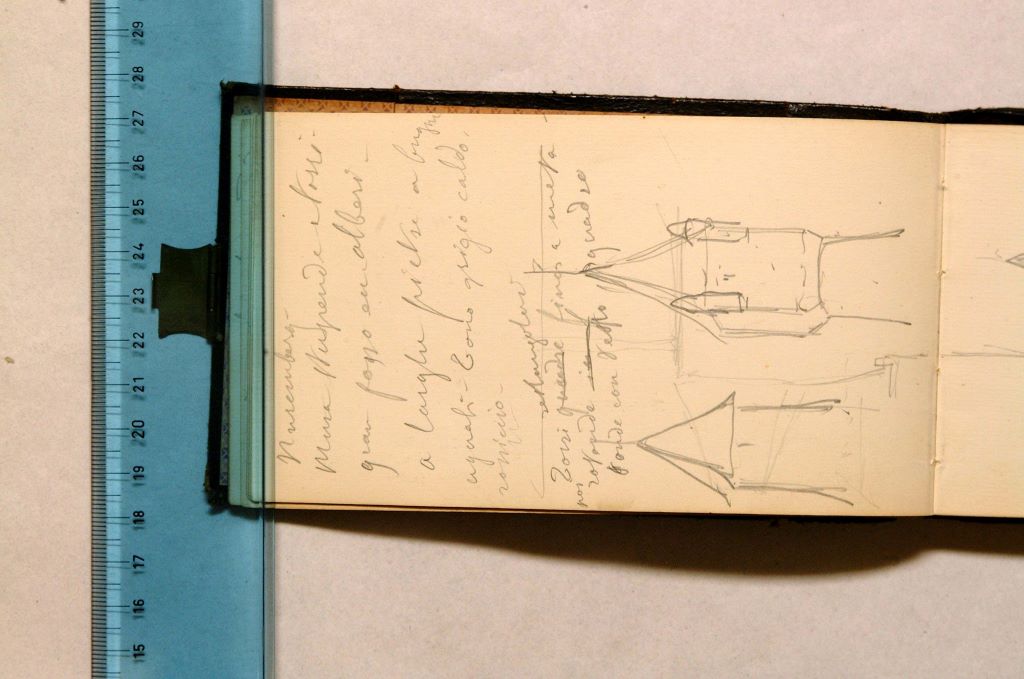 Nuremberg -
Mura Nugrende e rossi -
gran fosso con alberi -
a larghe pietre a bugne
uguali - Tono grigio caldo,
rossiccio -
rettangolari
Torri quadre fino a metà
poi rotonde quadro
tonde con tetto
15 16 17 18 19 20 21 22 23 24 25 26 27 28 29